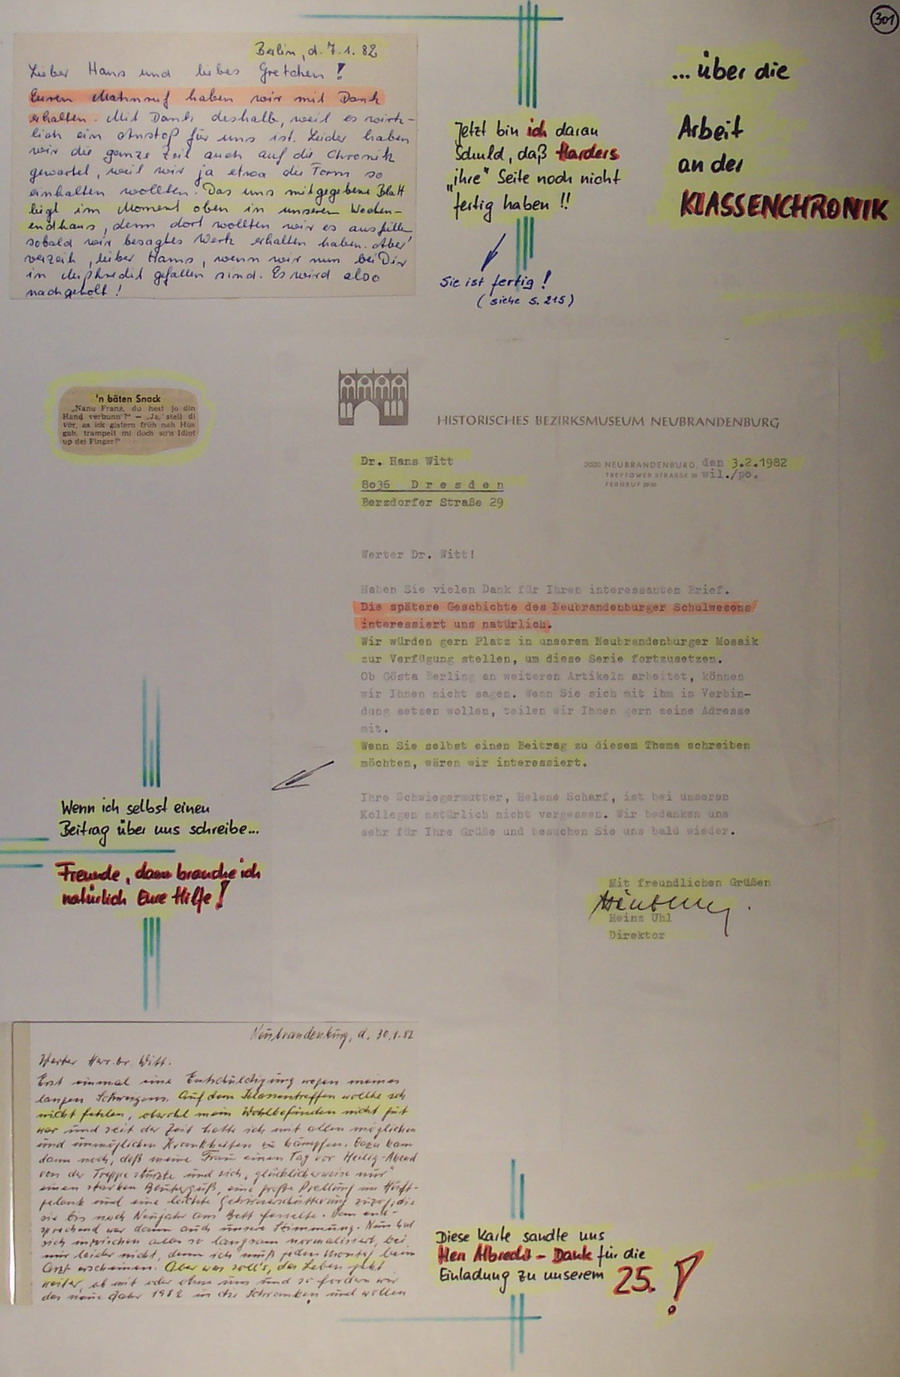 301
Berlin, d. 7.1.82
Lieber Hans und liebes Gretchen!
Euren Mahnruf haben wir mit Dank
erhalten. Mit Dank deshalb, weil es wirk-
lich ein Anstoß für uns ist. Leider haben
wir die ganze Zeit auch auf die Chronik
gewartet, weil wir ja etwa die Form so
einhalten wollten. Das uns mitgegebene Blatt
liegt im Moment oben in unserem Wochen-
endhaus, denn dort wollten wir es ausfüllen
sobald wir besagtes Werk erhalten haben. Aber
verzeih, lieber Hans, wenn wir nun bei Dir
in Mißkredit gefallen sind. Es wird also
nachgeholt!
Jetzt bin ich daran
Schuld, daß Harders
„ihre" Seite noch nicht
fertig haben!!
Sie ist fertig!
(siehe S. 215)
...über die
Arbeit
an der
KLASSENCHRONIK
'n bäten Snack
„Nanu Franz, du hest jo din
Hand verbunn'?" — „Ja, stell di
vör, as ick gistern früh nah Hus
gah, trampelt mi doch so'n Idiot
up dei Finger!"
HISTORISCHES BEZIRKSMUSEUM NEUBRANDENBURG
Dr. Hans Witt
8036 Dresden
Berzdorfer Straße 29
2000 NEUBRANDENBURG, den 3.2.1982
TREPTOWER STRASSE wil./po.
FERNRUF
Werter Dr. Witt!
Haben Sie vielen Dank für Ihren interessanten Brief.
Die spätere Geschichte des Neubrandenburger Schulwesens
interessiert uns natürlich.
Wir würden gern Platz in unserem Neubrandenburger Mosaik
zur Verfügung stellen, um diese Serie fortzusetzen.
Ob Gösta Berling an weiteren Artikeln arbeitet, können
wir Ihnen nicht sagen. Wenn Sie sich mit ihm in Verbin-
dung setzen wollen, teilen wir Ihnen gern seine Adresse
mit.
Wenn Sie selbst einen Beitrag zu diesem Thema schreiben
möchten, wären wir interessiert.
Ihre Schwiegermutter, Helene Scharf, ist bei unseren
Kollegen natürlich nicht vergessen. Wir bedanken uns
sehr für Ihre Grüße und besuchen Sie uns bald wieder.
Mit freundlichen Grüßen
Heinz Uhl
Direktor
Wenn ich selbst einen
Beitrag über uns schreibe...
Freunde, dann brauche ich
natürlich Eure Hilfe!
Neubrandenburg, d. 30.1.82
Werter Herr Dr. Witt.
Erst einmal eine Entschuldigung wegen meines
langen Schweigens. Auf dem Klassentreffen wollte ich
nicht fehlen, obwohl mein Wohlbefinden nicht gut
war und seit der Zeit hatte ich mit allen möglichen
und unmöglichen Krankheiten zu kämpfen. Dazu kam
dann noch, daß meine Frau einen Tag vor Heilig-Abend
von der Treppe stürzte und sich „glücklicherweise nur"
einen starken Bluterguß, eine große Prellung im Hüft-
gelenk und eine leichte Gehirnerschütterung zuzog, die
sie bis nach Neujahr ans Bett fesselte. Dem ent-
sprechend war dann auch unsere Stimmung. Nun hat
sich inzwischen alles so langsam normalisiert, bei
mir leider nicht, denn ich muß jeden Montag beim
Arzt erscheinen. Aber was soll's, das Leben geht
weiter, ob mit oder ohne uns und so fordern wir
das neue Jahr 1982 in die Schranken und wollen
Diese Karte sandte uns
Herr Albrecht - Dank für die
Einladung zu unserem 25.!